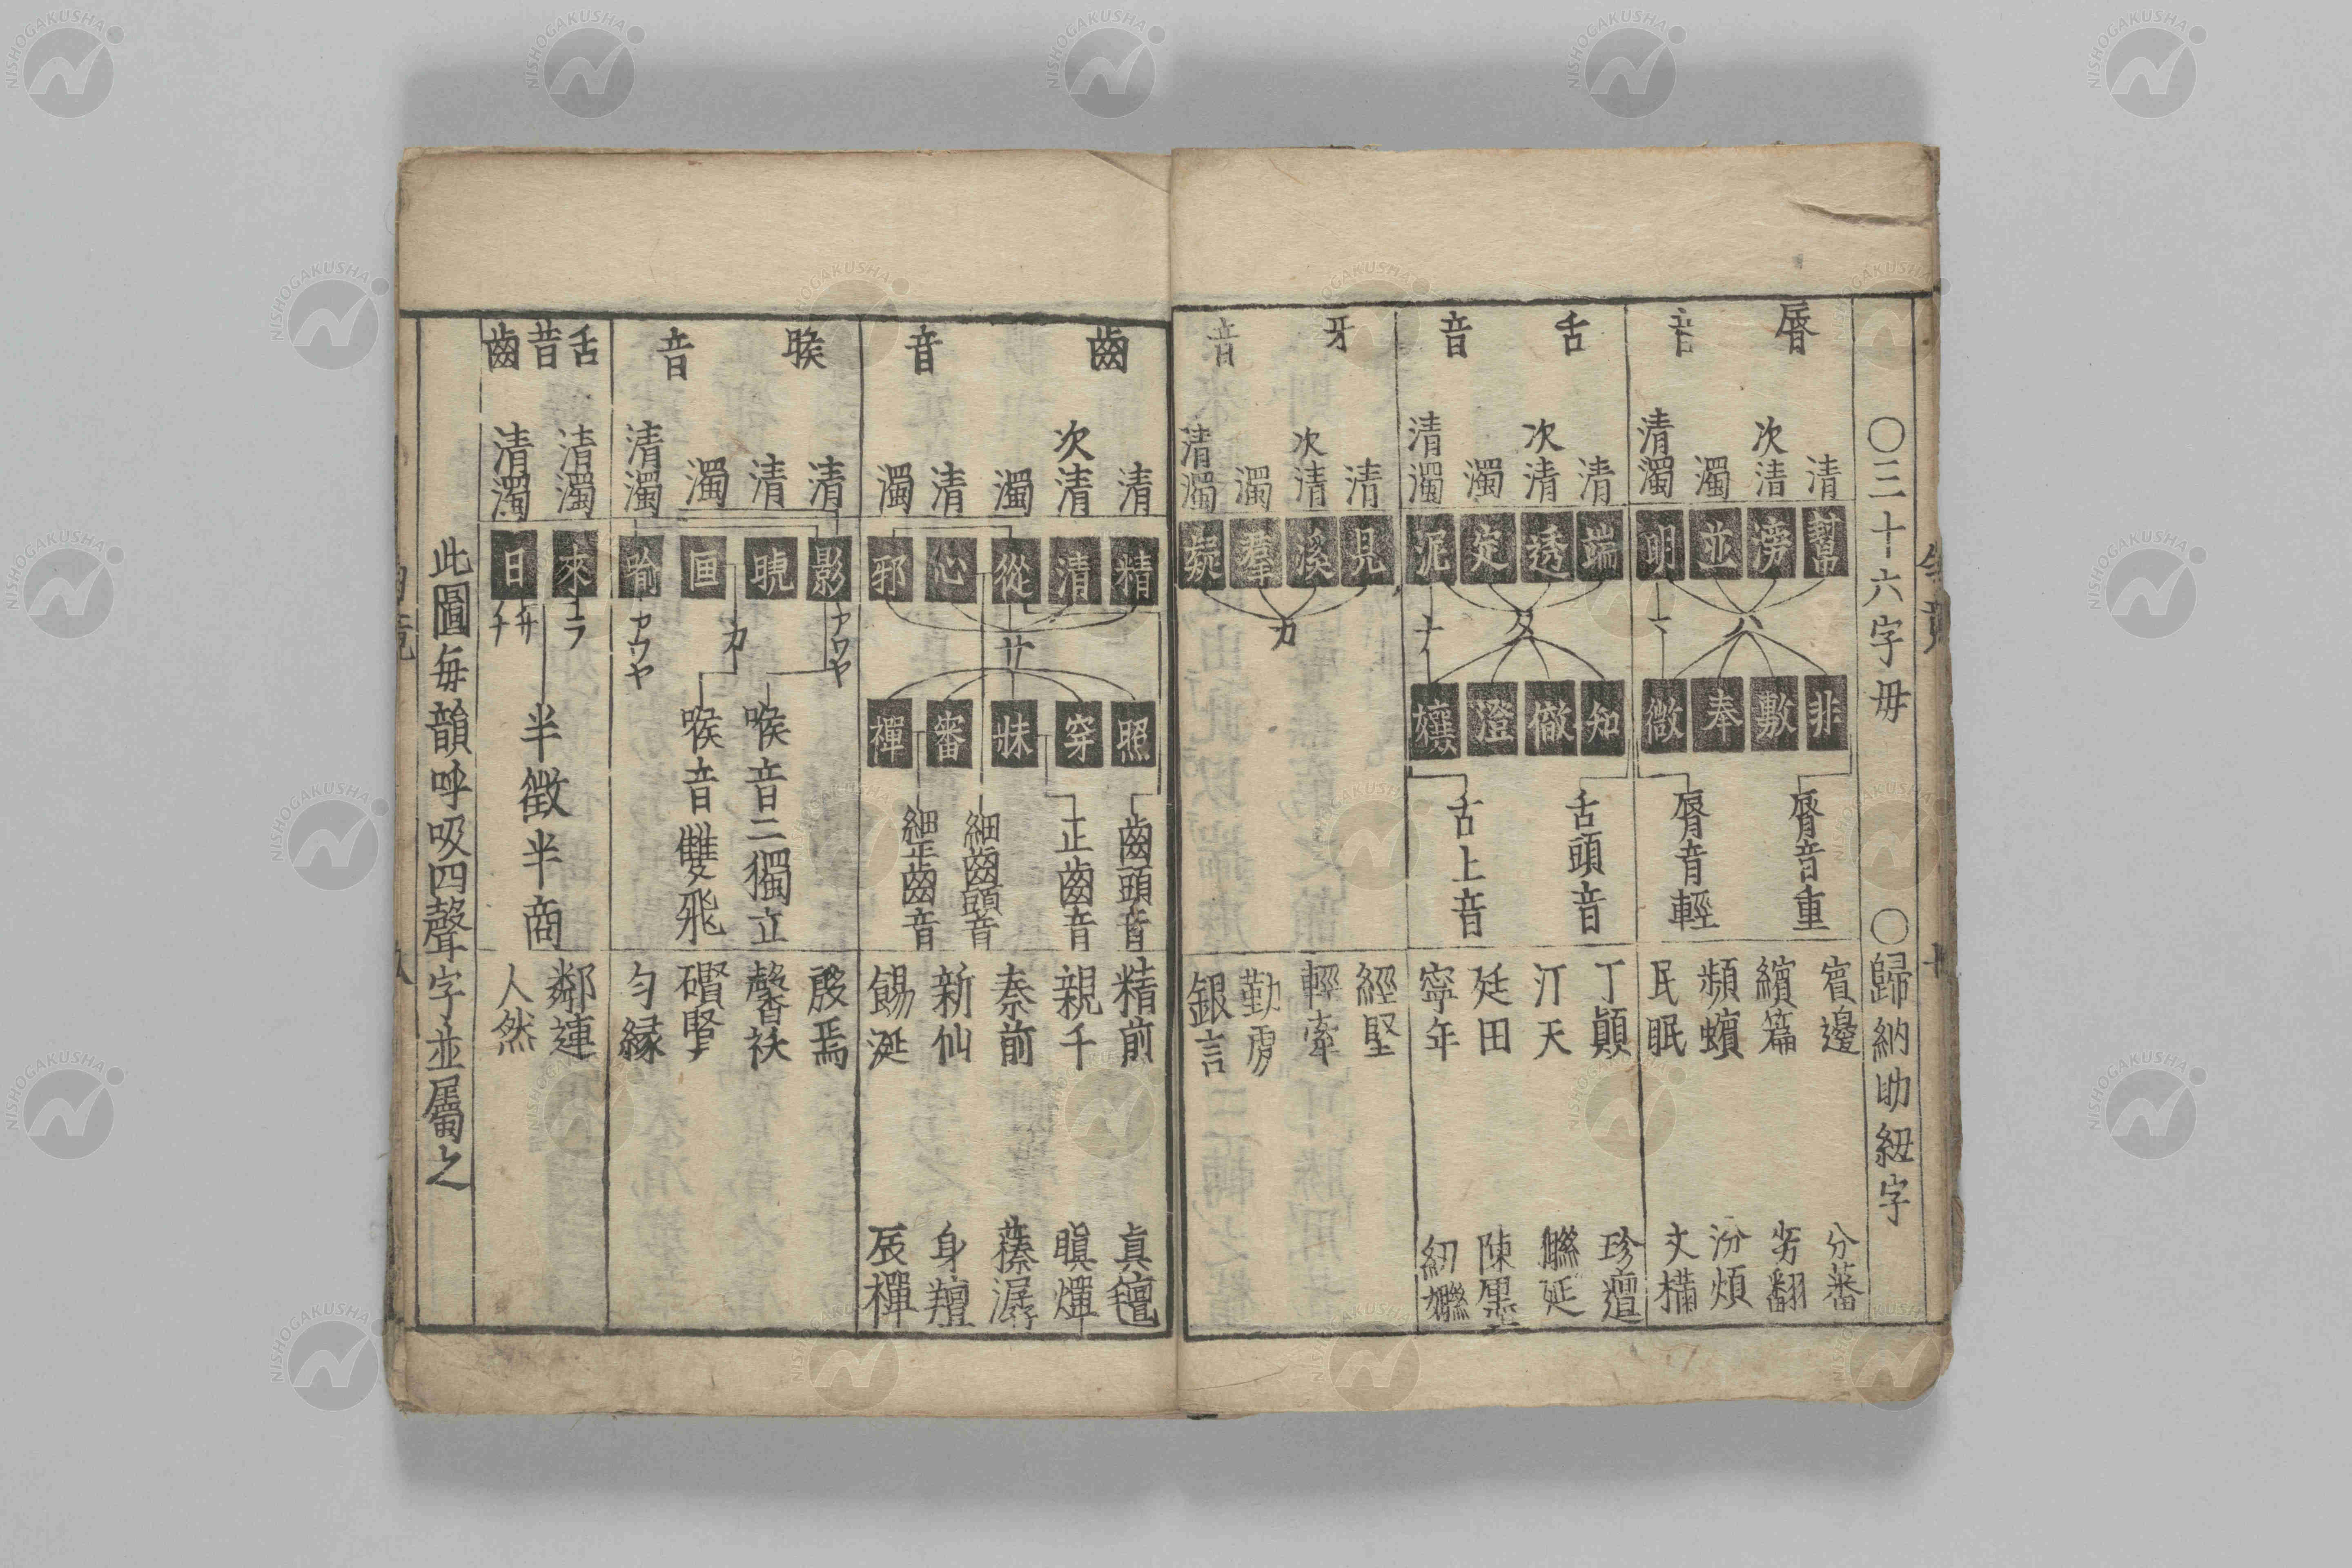 〇三十六字毋 〇歸納助紐字
脣音
清 次清 濁 清濁
幫 滂 並 明
ハ マ
非 敷 奉 微
脣音重
脣音輕
賓邊 繽篇 頻蠙 民眠
分蕃 芳翻 汾煩 文樠
舌音
清 次清 濁 清濁
端 透 定 泥
タ ナ
知 徹 澄 孃
舌頭音
舌上音
丁顛 汀天 廷田 寧年
珍邅 陳㕓 紉
牙音
清 次清 濁 清濁
見 溪 羣 疑
カ
經堅 輕牽 勤虔 銀言
齒音
清 次清 濁 清 濁
精 清 從 心 邪
サ
照 穿 牀 審 禪
齒頭音
正齒音
細齒頭音
細正齒音
精前 親千 秦前 新仙 餳涎
真氈 瞋燀 榛潺 身羶 辰禪
喉音
清 清 濁 清濁
影 曉 匣 喻
アワヤ カ アワヤ
喉音二獨立
喉音雙飛
殷焉 馨祆 礥賢 勻緣
舌音齒
清濁 清濁
來 日
ラ サ ナ
半徵半商
鄰連 人然
此圖每韻呼吸四聲字並屬之
NISHOGAKUSHA